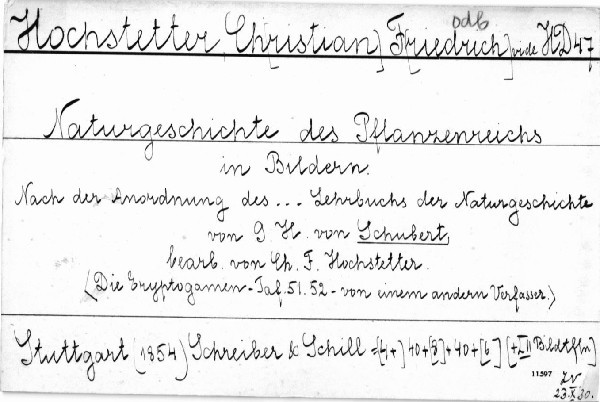 odb
Hochstetter, Ch[ristian] F[riedrich] vide HD47
Naturgeschichte des Pflanzenreichs
in Bildern.
Nach der Anordnung des ... Lehrbuchs der Naturgeschichte
von G. H. von Schubert,
bearb. von Ch. F. Hochstetter.
(Die Cryptogamen-Taf. 51. 52 - von einem andern Verfasser.)
Stuttgart (1854) Schreiber & Schill =[4+] 40+[8]+40+[6] [+LII Bildtfln]
11597
23.X.30.